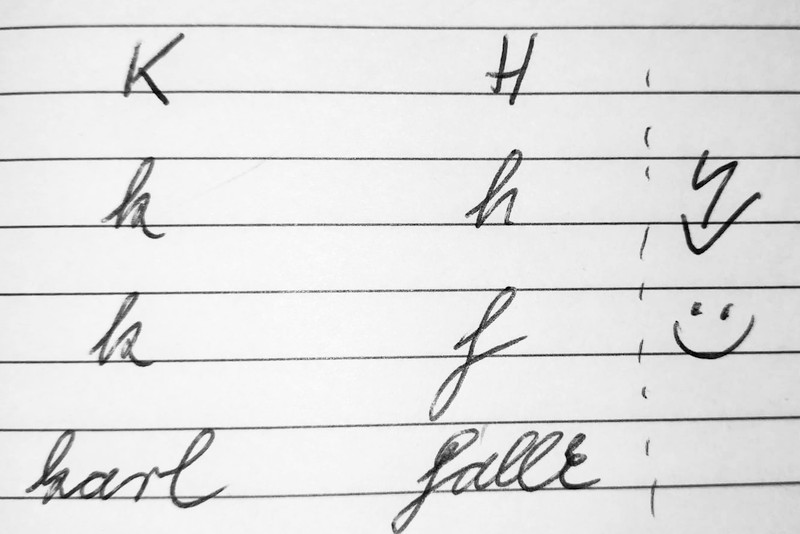 K H
k h
k f
karl falle